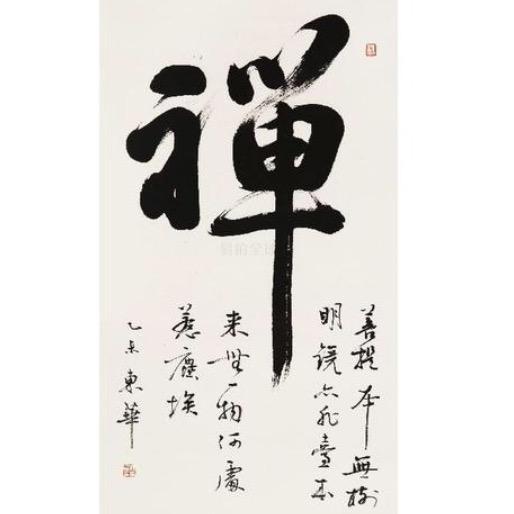 禪
菩提本無樹
明鏡亦非臺本
来無一物何處
惹塵埃
乙未東華